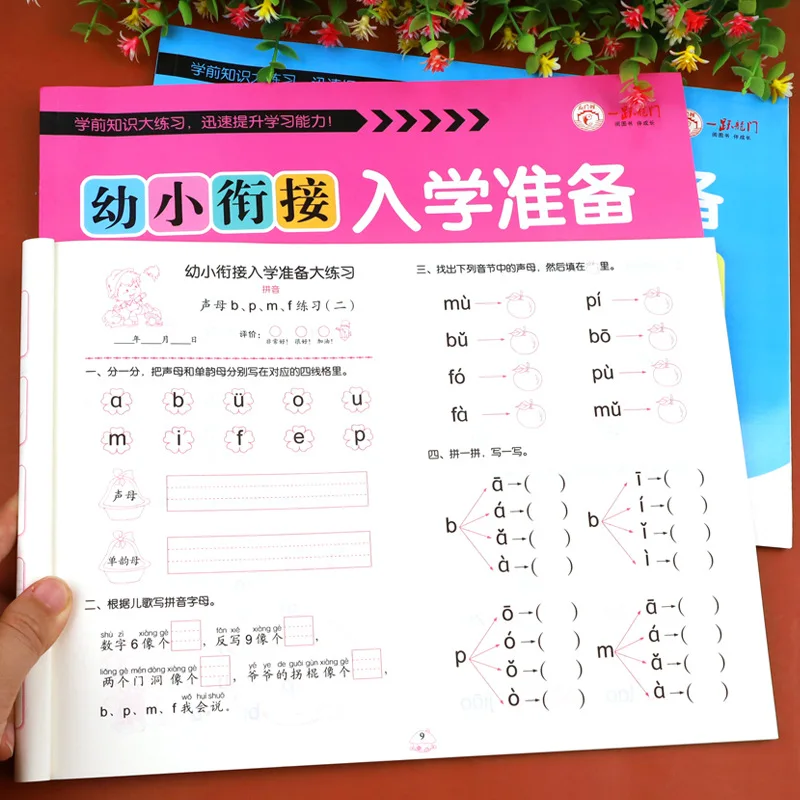 学前知识大练习，迅速提升
学前知识大练习，迅速提升学习能力！
一跃龙门
阅图书 伴成长
一跃龙门
阅图书 伴成长
幼小衔接入学准备
备
幼小衔接入学准备大练习
拼音
声母b、p、m、f练习(二)
____年____月____日
评价：
非常好！ 很好！ 加油！
一、分一分，把声母和单韵母分别写在对应的四线格里。
a b ü o u
m i f e p
声母
单韵母
二、根据儿歌写拼音字母。
shù zì xiàng gè fǎn xiě xiàng gè
数字6像个 ，反写9像个 ，
liǎng gè mén dòng xiàng gè yé ye de guǎi gùn xiàng gè
两个门洞像个 ，爷爷的拐棍像个 ，
wǒ huì shuō
b、p、m、f我会说。
三、找出下列音节中的声母，然后填在 里。
mù pí
bǔ bō
fó pù
fà mǔ
四、拼一拼，写一写。
b ā→( ) á→( ) ǎ→( ) à→( )
b ī→( ) í→( ) ǐ→( ) ì→( )
p ō→( ) ó→( ) ǒ→( ) ò→( )
m ā→( ) á→( ) ǎ→( ) à→( )
9